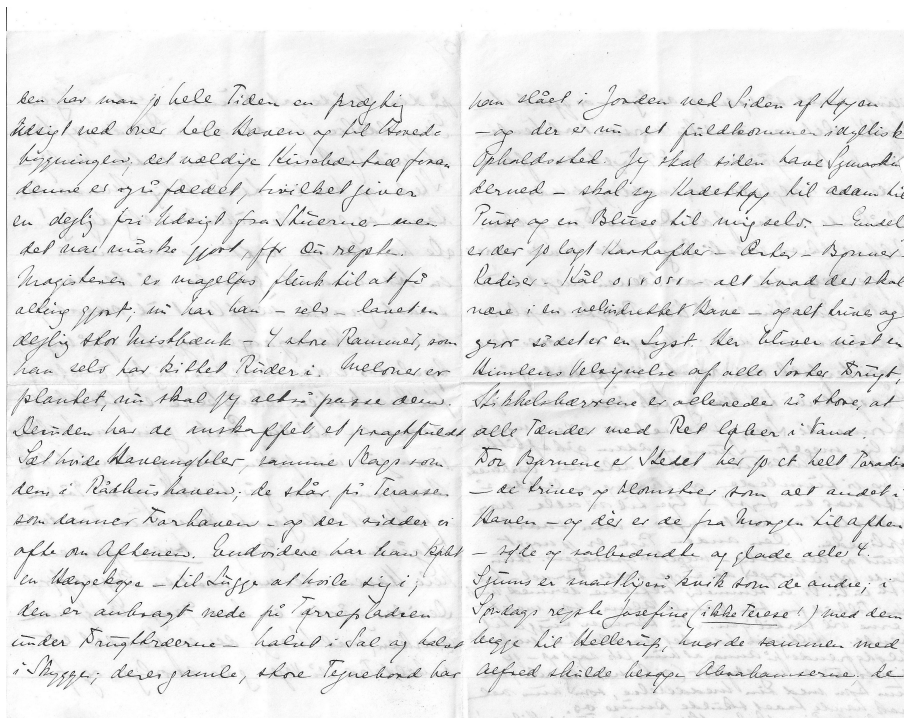 den har man jo hele Tiden en prægtig
Udsigt ned over hele Haven og til Hoved-
bygningen; det vældige Kirsebærtræ foran
denne er også fældet, hvilket giver
en dejlig fri Udsigt fra Stuerne – men
det var måske gjort, før Du rejste.
Magisteren er mageløs flink til at få
alting gjort; nu har han – selv – lavet en
dejlig stor Mistbænk – 4 store Rammer, som
han selv har kittet Ruder i. Meloner er
plantet, nu skal jeg altså passe dem.
Desuden har de anskaffet et pragtfuldt
Sæt hvide Havemøbler, samme Slags som
dem i Rådhushaven; de står på Terassen
som danner Forhaven – og der sidder vi
ofte om Aftenen. Endvidere har han købt
en Hængekøje – til Lugge at hvile sig i;
den er anbragt nede på Tørrepladsen
under Frugttræerne – halvt i Sol og halvt
i Skygge; deres gamle, store Tegnebord har
han slået i Jorden ved Siden af Køjen
– og der er nu et fuldkommen idyllisk
Opholdssted. Jeg skal siden have Symaskinen
derned – skal sy til Adam til
Pinse og en Bluse til mig selv. – Endel
er der jo lagt Kartofler – Ærter – Bønner –
Radiser – Kål o s v o s v – alt hvad der skal
være i en velindrettet Have – og alt trives og
gror så det er en Lyst. Her bliver vist en
Himlens Velsignelse af alle Sorter Frugt,
Stikkelsbærrene er allerede så store, at
alle Tænder med Ret løber i Vand.
For Børnene er Stedet her jo et helt Paradis
– de trives og blomstrer som alt andet i
Haven – og dèr er de fra Morgen til Aften
– søde og solbrændte og glade alle 4.
er snart ligeså kvik som de andre; i
Søndags rejste Josefine (ikke Terese!) med dem
begge til Hellerup, hvor de sammen med
Alfred skulde besøge Abrahamserne. de